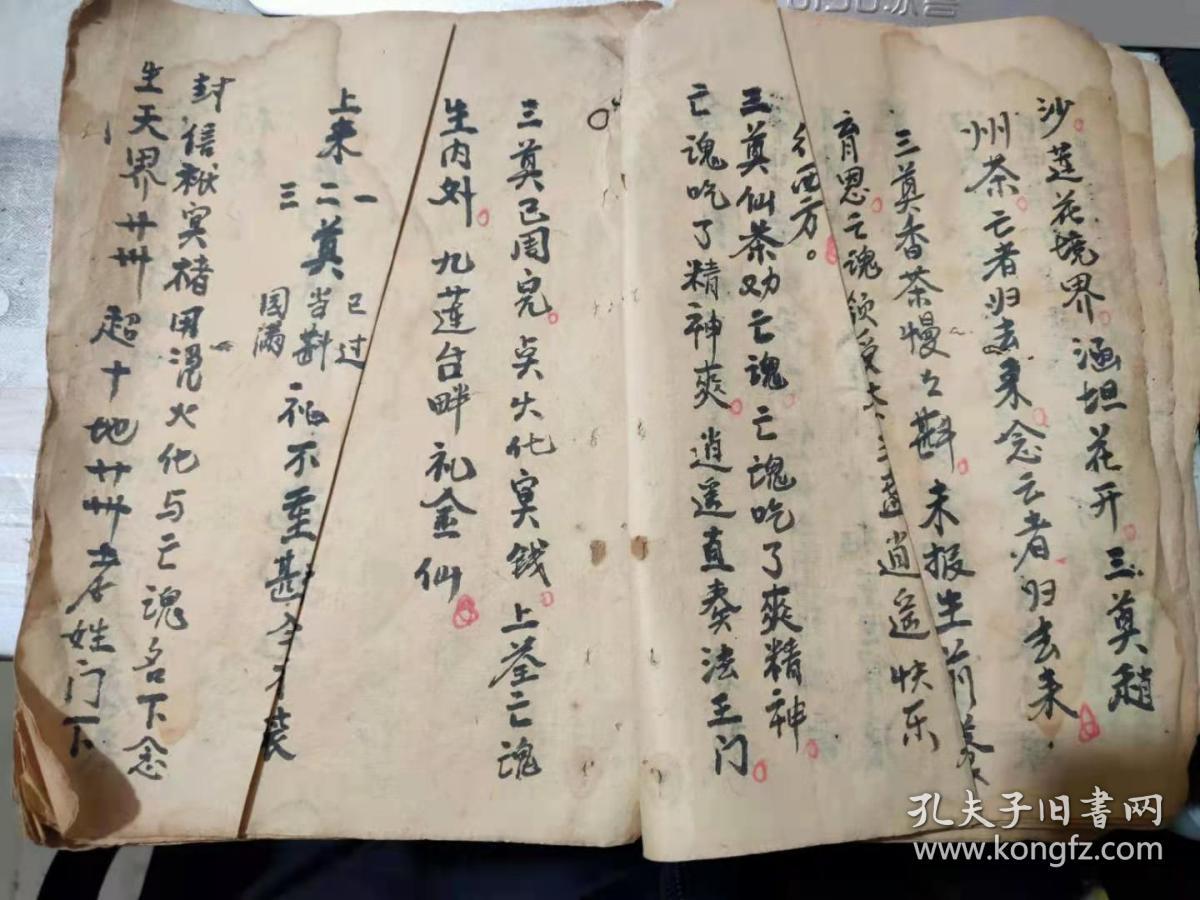 沙莲花境界涵坦花开三奠趙
州茶亡者归去来念亡者归去来
三奠香茶慢々斟未报生前养
育恩亡魂领受 逍遥快乐
往西方。
三奠仙茶劝亡魂亡魂吃了爽精神
亡魂吃了精神爽逍遥直奏法王门
三奠已周完矣火化冥钱上荃亡魂
生内外九莲台畔礼金仙
上来三二一奠已过当斟圆满礼不重斟今才装
封信袱冥禇用凭火化与亡魂名下念
生天界卄卅超十地卄卅 姓门下
孔夫子旧书网
www.kongfz.com